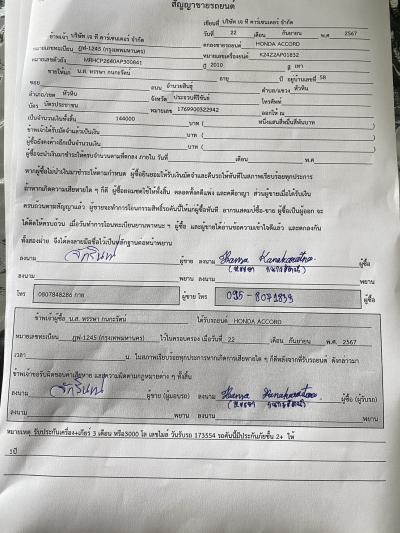 สัญญาขายรถยนต์
เขียนที่ บริษัท เจ ที คาร์เซนเตอร์ จำกัด
ข้าพเจ้า บริษัท เจ ที คาร์เซนเตอร์ จำกัด วันที่ 22 เดือน กันยายน พ.ศ 2567
หมายเลขทะเบียน ฎฬ-1245 (กรุงเทพมหานคร) ตกลงขายรถยนต์ HONDA ACCORD
หมายเลขตัวถัง MRHCP2680AP300841 หมายเลขเครื่องยนต์ K24Z2AP01832
ขายให้แก่ น.ส. หรรษา กนกะรัตน์ ปี 2010 สี เทา
ซอย ถนน อำนวยสินธุ์ อายุ ปี อยู่บ้านเลขที่ 58
อำเภอ/เขต หัวหิน จังหวัด ประจวบคีรีขันธ์ ตำบล/แขวง หัวหิน
บัตร บัตรประชาชน หมายเลข 1769900322942 โทรศัพท์
ออกให้ ณ
เป็นจำนวนเงินทั้งสิ้น 144000 บาท ( หนึ่งแสนสี่หมื่นสี่พันบาท )
ข้าพเจ้าได้รับมัดจำแล้วเป็นเงิน บาท ( )
ผู้ซื้อยังคงค้างอีกเป็นจำนวนเงิน บาท ( )
ผู้ซื้อจะนำเงินมาชำระให้ครบจำนวนตามที่ตกลง ภายใน วันที่ เดือน พ.ศ
หากผู้ซื้อไม่นำเงินมาชำระให้ตามกำหนด ผู้ซื้อยินยอมให้ริบเงินมัดจำและคืนรถให้ทันทีในสภาพเรียบร้อยทุกประการ
ถ้าหากเกิดความเสียหายใด ๆ ก็ดี ผู้ซื้อยอมชดใช้ให้ทั้งสิ้น ตลอดทั้งคดีแพ่ง และคดีอาญา ส่วนผู้ขายเมื่อได้รับเงิน
ครบถ้วนตามสัญญาแล้ว ผู้ขายจะทำการโอนกรรมสิทธิ์รถคันนี้ให้แก่ผู้ซื้อทันที อากรแสตมป์ซื้อ-ขาย ผู้ซื้อเป็นผู้ออก จะ
ได้ติดให้ครบถ้วน เมื่อวันทำการโอนทะเบียนยานพาหนะ ฯ ผู้ซื้อ และผู้ขายได้อ่านข้อความเข้าใจดีแล้ว และตกลงกัน
ทั้งสองฝ่าย จึงได้ลงลายมือชื่อไว้เป็นหลักฐานต่อหน้าพยาน
ลงนาม จักรินทร์ ผู้ขาย ลงนาม Hansa Kanakaratna ผู้ซื้อ
ลงนาม พยาน ลงนาม (หรรษา กนกะรัตน์) พยาน
โทร 0807848286 กาย ผู้ขาย โทร 095-8071839 ผู้ซื้อ
ข้าพเจ้าผู้ซื้อ น.ส. หรรษา กนกะรัตน์ ได้รับรถยนต์ HONDA ACCORD
หมายเลขทะเบียน ฎฬ-1245 (กรุงเทพมหานคร) ไว้ในครอบครอง เมื่อวันที่ 22 เดือน กันยายน พ.ศ. 2567
เวลา น. ในสภาพเรียบร้อยทุกประการหากเกิดการเสียหายใด ๆ ก็ดีหลังจากที่รับรถยนต์ ดังกล่าวมา
ข้าพเจ้าขอรับผิดชอบค่าเสียหาย และความผิดตามกฎหมายต่าง ๆ ทั้งสิ้น
ลงนาม จักรินทร์ ผู้ขาย (ผู้มอบรถ) ลงนาม Hansa Kanakaratna ผู้ซื้อ (ผู้รับรถ)
ลงนาม พยาน ลงนาม (หรรษา กนกะรัตน์) พยาน
หมายเหตุ รับประกันเครื่อง+เกียร์ 3 เดือน หรือ3000 โล เลขไมล์ วันรับรถ 173554 รถคันนี้มีประกันภัยชั้น 2+ ให้
1ปี